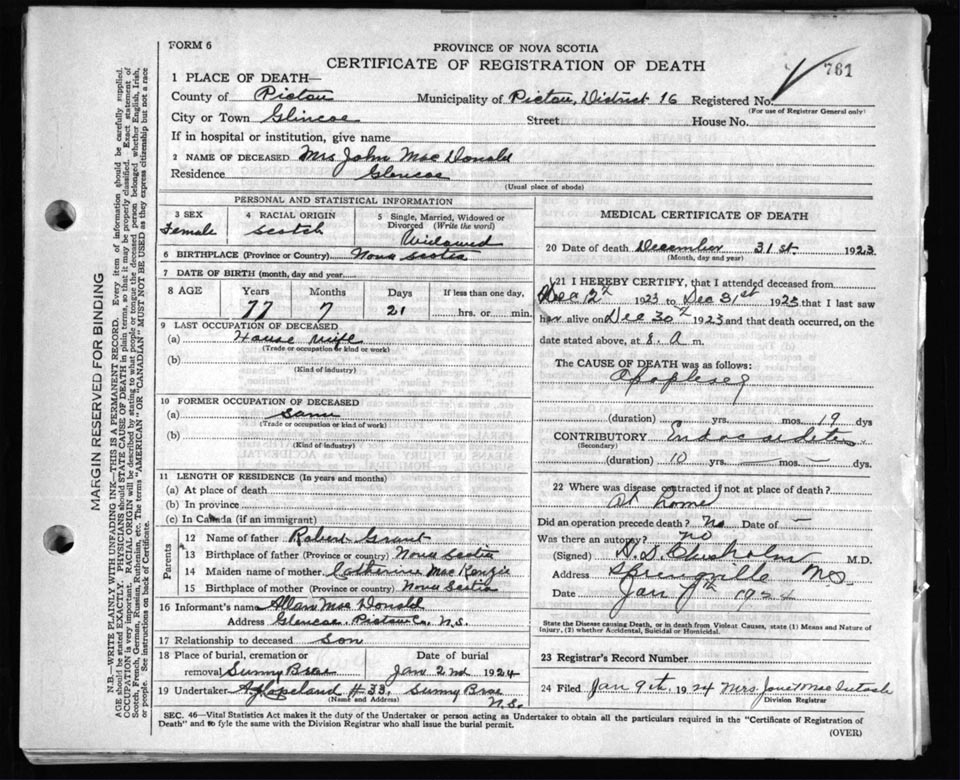 FORM 6
PROVINCE OF NOVA SCOTIA
CERTIFICATE OF REGISTRATION OF DEATH
761
1 PLACE OF DEATH—
County of Pictou Municipality of Pictou, District 16 Registered No.
(For use of Registrar General only)
City or Town Glincoe Street House No.
If in hospital or institution, give name
2 NAME OF DECEASED Mrs John Mac Donald
Residence Glencoe
(Usual place of abode)
PERSONAL AND STATISTICAL INFORMATION
3 SEX 4 RACIAL ORIGIN 5 Single, Married, Widowed or Divorced (Write the word)
Female Scotch Widowed
6 BIRTHPLACE (Province or Country) Nova Scotia
7 DATE OF BIRTH (month, day and year)
8 AGE Years Months Days If less than one day,
77 7 21 hrs. or min.
9 LAST OCCUPATION OF DECEASED
(a) House wife
(Trade or occupation or kind or work)
(b)
(Kind of industry)
10 FORMER OCCUPATION OF DECEASED
(a) Same
(Trade or occupation or kind of work)
(b)
(Kind of industry)
11 LENGTH OF RESIDENCE (In years and months)
(a) At place of death
(b) In province
(c) In Canada (if an immigrant)
Parents
12 Name of father Robert Grant
13 Birthplace of father (Province or country) Nova Scotia
14 Maiden name of mother Catherine Mac Kenzie
15 Birthplace of mother (Province or country) Nova Scotia
16 Informant's name Allan Mac Donald
Address Glencoe, Pictou Co. N.S.
17 Relationship to deceased Son
18 Place of burial, cremation or removal Sunny Brae Date of burial Jan 2nd 1924
19 Undertaker #33, Sunny Brae N.S.
(Name and Address)
MEDICAL CERTIFICATE OF DEATH
20 Date of death December 31st. 1923
(Month, day and year)
21 I HEREBY CERTIFY, that I attended deceased from
Dec 12th 1923 to Dec 31st 1923 that I last saw
her alive on Dec 30th 1923 and that death occurred, on
date stated above, at 8. A m.
The CAUSE OF DEATH was as follows:
Apoplexy
(duration) yrs. mos. 19 dys
CONTRIBUTORY Endocarditis
(Secondary)
(duration) 10 yrs. — mos — dys.
22 Where was disease contracted if not at place of death?
At home
Did an operation precede death? No Date of —
Was there an autopsy? no
(Signed) D. D. Chisholm M.D.
Address Springville N.S.
Date Jan 1924
State the Disease causing Death, or in death from Violent Causes, state (1) Means and Nature of Injury, (2) whether Accidental, Suicidal or Homicidal.
23 Registrar's Record Number
24 Filed Jan 9th 1924 Mrs. Janet Mac Intosh
Division Registrar
SEC. 46—Vital Statistics Act makes it the duty of the Undertaker or person acting as Undertaker to obtain all the particulars required in the "Certificate of Registration of
Death" and to fyle the same with the Division Registrar who shall issue the burial permit.
(OVER)
MARGIN RESERVED FOR BINDING
N.B.—WRITE PLAINLY WITH UNFADING INK—THIS IS A PERMANENT RECORD. Every item of information should be carefully supplied.
AGE should be stated EXACTLY. PHYSICIANS should STATE CAUSE OF DEATH in plain terms, so that it may be properly classified. Exact statement of
OCCUPATION is very important. RACIAL ORIGIN will be described by stating to what people or tongue the deceased person belonged whether English, Irish,
Scotch, French, German, Russian, Ruthenian, etc. The terms "AMERICAN" OR "CANADIAN" MUST NOT BE USED as they express citizenship but not a race
or people. See instructions on back of Certificate.